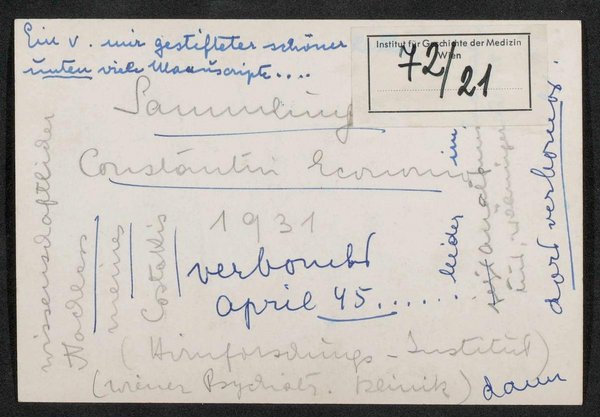 Ein v. mir gestifteter schöner
unten viele Manuscripte....
Institut für Geschichte der Medizin
Wien
72/21
Sammlung
Constantin Economo
1931
verbombt
April 45......
leider
im
dort verbombt.
wissenschaftlicher
Nachlass
meines
Costakis
(Hirnforschungs-Institut)
(Wiener Psychiatr. Klinik) dann